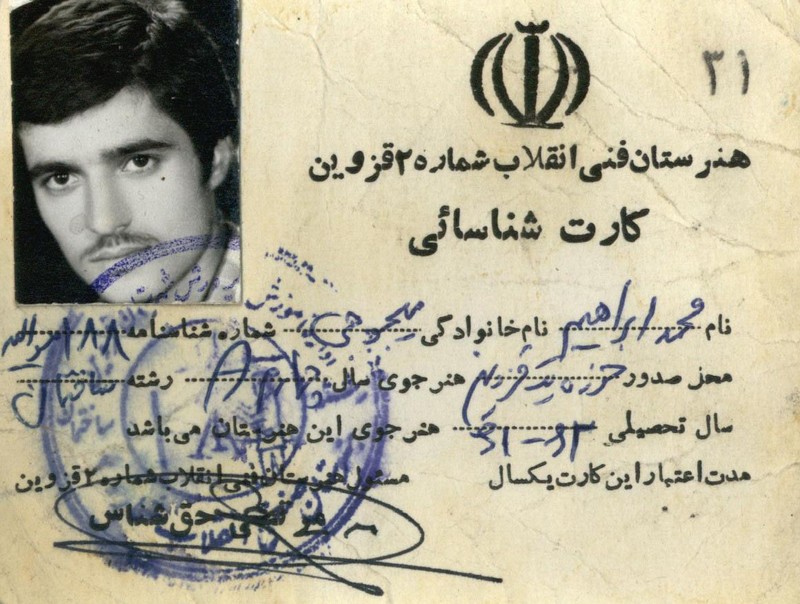 ۳۱
هنرستان فنی انقلاب شماره ۲ قزوین
کارت شناسائی
نام محمد ابراهیم نام خانوادگی شماره شناسنامه ۱۸۸
محز صدور حوزه یک قزوین هنرجوی سال چهارم A رشته ساختمان
سال تحصیلی ۶۲-۶۱ هنرجوی این هنرستان می باشد
مدت اعتبار این کارت یکسال مسئول هنرستان فنی انقلاب شماره ۲ قزوین
حق شناس